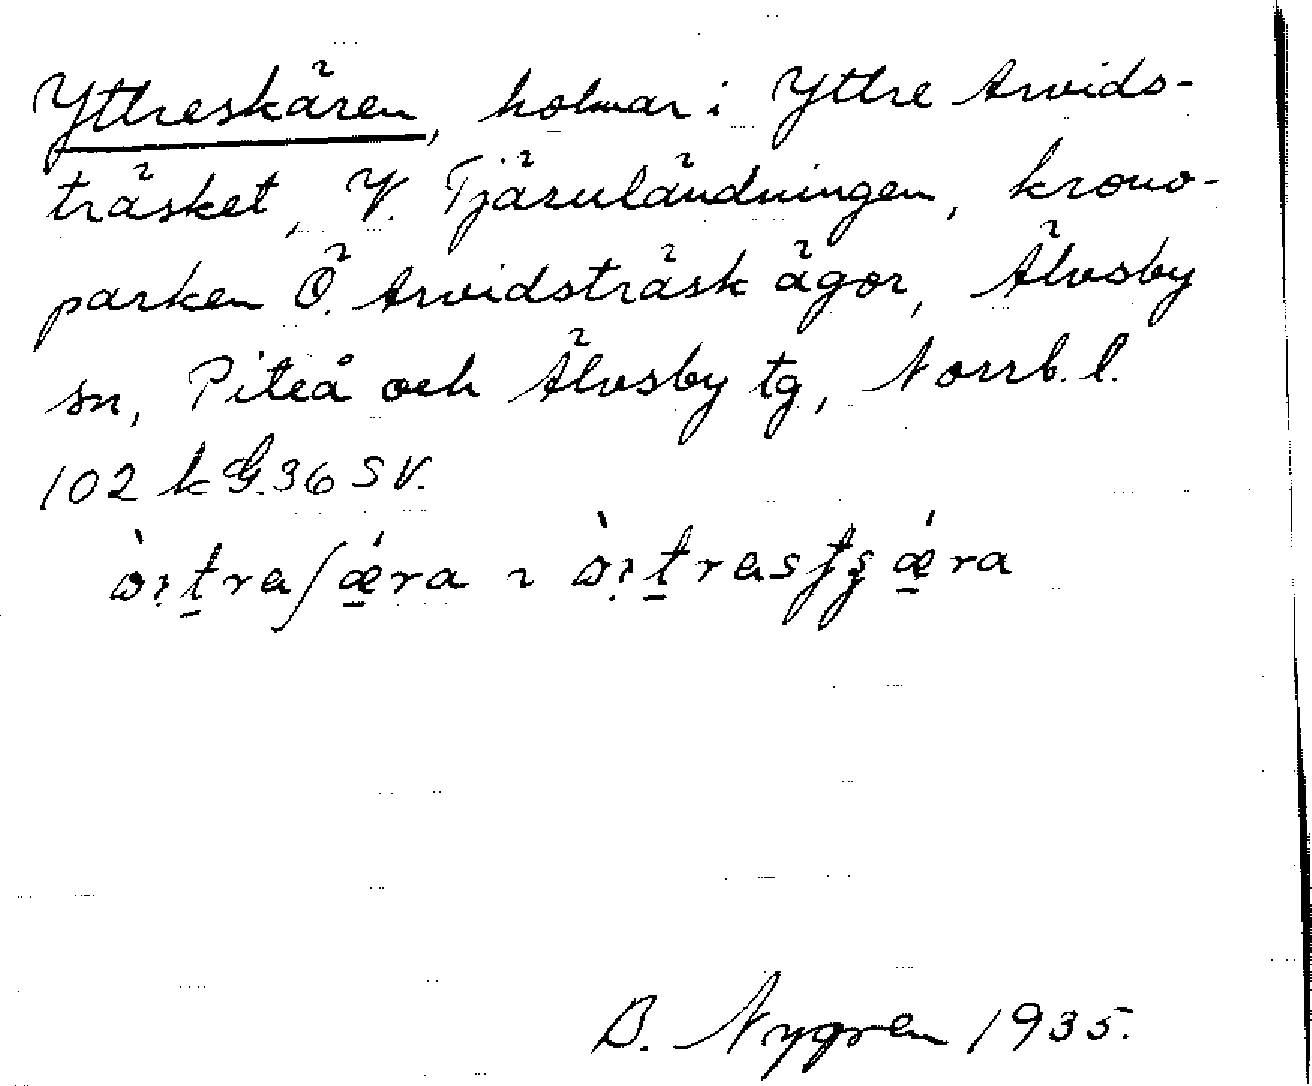 Yttreskären, holmar i Yttre Arvids-
träsket, V. Tjärnländningen, krono-
parken Ö. Arvidsträsk ägor, Älvsby
sn, Piteå och Älvsby tg, Norrb. l.
102 k G. 36 SV.
B. Nygren 1935.